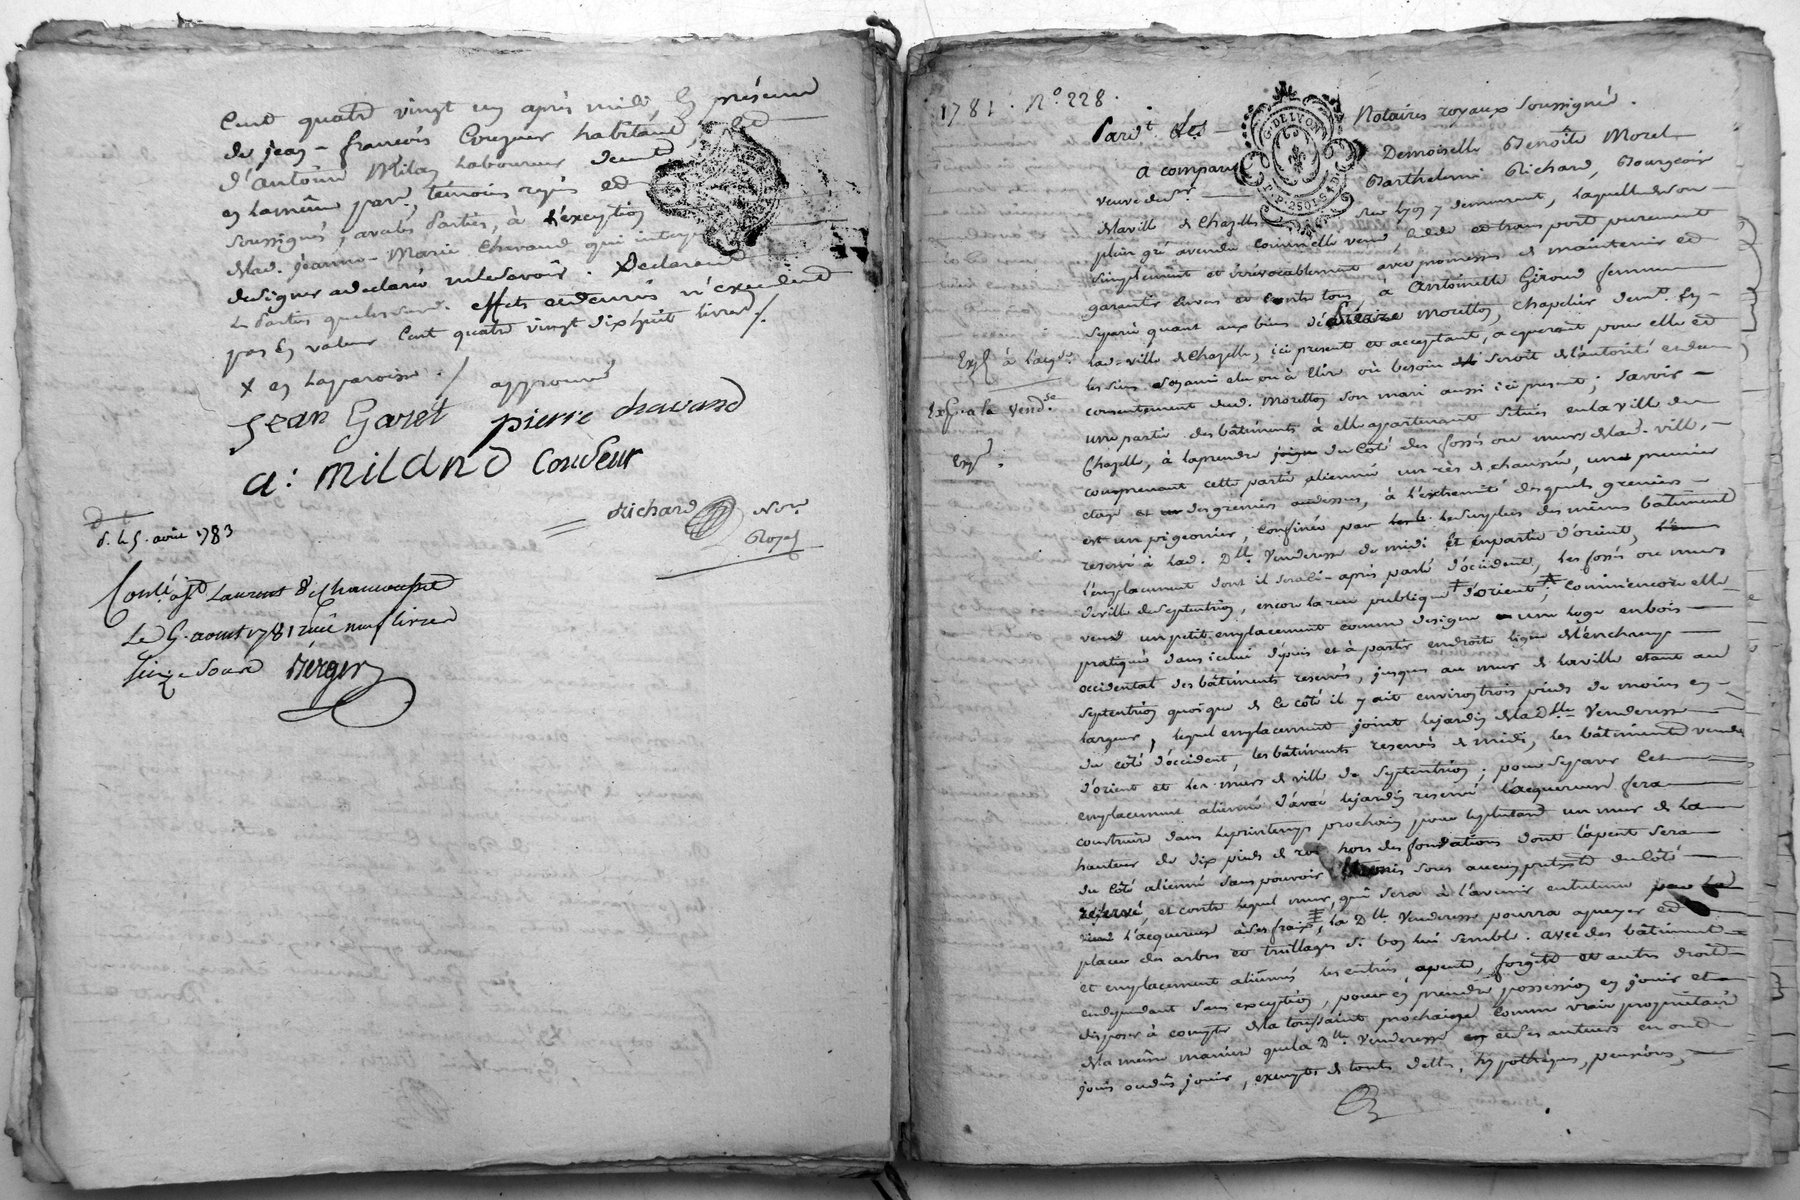 Cent quatre vingt un après midi, En présence
de jean-françois Couzeur habitant, et
d'antoine Milan Laboureur demt
en la même paré, témoins requis et
soussignés, avec les Parties, à l'exception
de lad. jeanne-Marie Chavand qui interpe
de signer a declaré ne le savoir. Declarent
les Parties que lesd. effets et denrés n'excedent
pas En valeur Cent quatre vingt dix huit livres ./.
X en la paroisse ./ approuvé
jean Garet pierre chavand
a: miland Couseur
Richard Nore
Royal
d. le 5. aoust 1783
Contlé à St Laurent de Chamousset
Le 5. aoust 1781 reçu neuf livres
Seize sous Berger
1781. No. 228.
Pardt. les Notaires royaux soussignés.
G. DE LYON
P.P. 2 SOLS 4 D.
a comparu Demoiselle Benoîte Morel
veuve de sr. Barthelemi Richard, Bourgeois
de la ville de Chazelle sur lyon y demeurant, laquelle de son
plein gré a vendu comme elle vend, Cede et transporte purement
simplement et irrévocablement avec promesses de maintenir et
garantir Envers et Contre tous, à Antoinette Giroud femme
separée quant aux biens de pierre Morellon, Chapelier demt. En
lad. ville de Chazelle, ici presente et acceptant, acquerant pour elle et
les siens son ami elu ou à Elire où besoin seroit de l'autorité et du
consentement dud. Morellon son mari aussi ici présent; Savoir
une partie des bâtiments à elle appartenant situés en la ville de
Chazelle, à la prendre du Coté des fossés ou murs de lad. ville,
comprenant cette partie alienée un rès de chaussée, un premier
etage et des greniers au dessus, à l'extremité desquels greniers
est un pigeonier, Confinée par le surplus des mêmes bâtiments
reservé à lad. Dlle. Venderesse de midi et en partie d'orient,
l'emplacement dont il sera ci-après parlé d'occident, les fossés ou murs
de ville de septentrion, encore la rue publique d'orient, Comme encore elle
vend un petit emplacement comme designe une loge en bois
pratiquée dans icelui depuis et à partir en droite ligne de l'enchamp
occidental des bâtiments reservés, jusques au mur de la ville etant au
septentrion quoique de ce côté il y ait environ trois pieds de moins en
largeur, lequel emplacement joint le jardin de la Dlle. Venderesse
du côté d'occident, les bâtiments reservés de midi, les bâtiments vendus
d'orient et les murs de ville de septentrion; pour separer Cet
emplacement aliené d'avec le jardin reservé l'acquereuse fera
construire dans le printemps prochain pour le plutard un mur de la
hauteur de dix pieds de roi hors des fondations dont l'apent sera
du Côté aliené sans pouvoir être mis sous aucun pretexte du côté
reservé, et contre lequel mur, qui sera à l'avenir entretenu par
l'acquereuse à ses frais, la Dlle Venderesse pourra apuyer et
placer des arbres et treillages si bon lui semble. avec des bâtiments
et emplacement alienés les entrées, apents, forgets et autres droits
en dependant sans exception, pour en prendre possession en jouir et
disposer à compter de la toussaint prochaine Comme vraie propriétaire
de la même maniere que la Dlle. Venderesse et ses auteurs en ont
joui ou dû jouir, exempts de toutes dettes, hypothéques, pensions,
Exp à l'acqse.
Exp. a la Vendse
Exp.